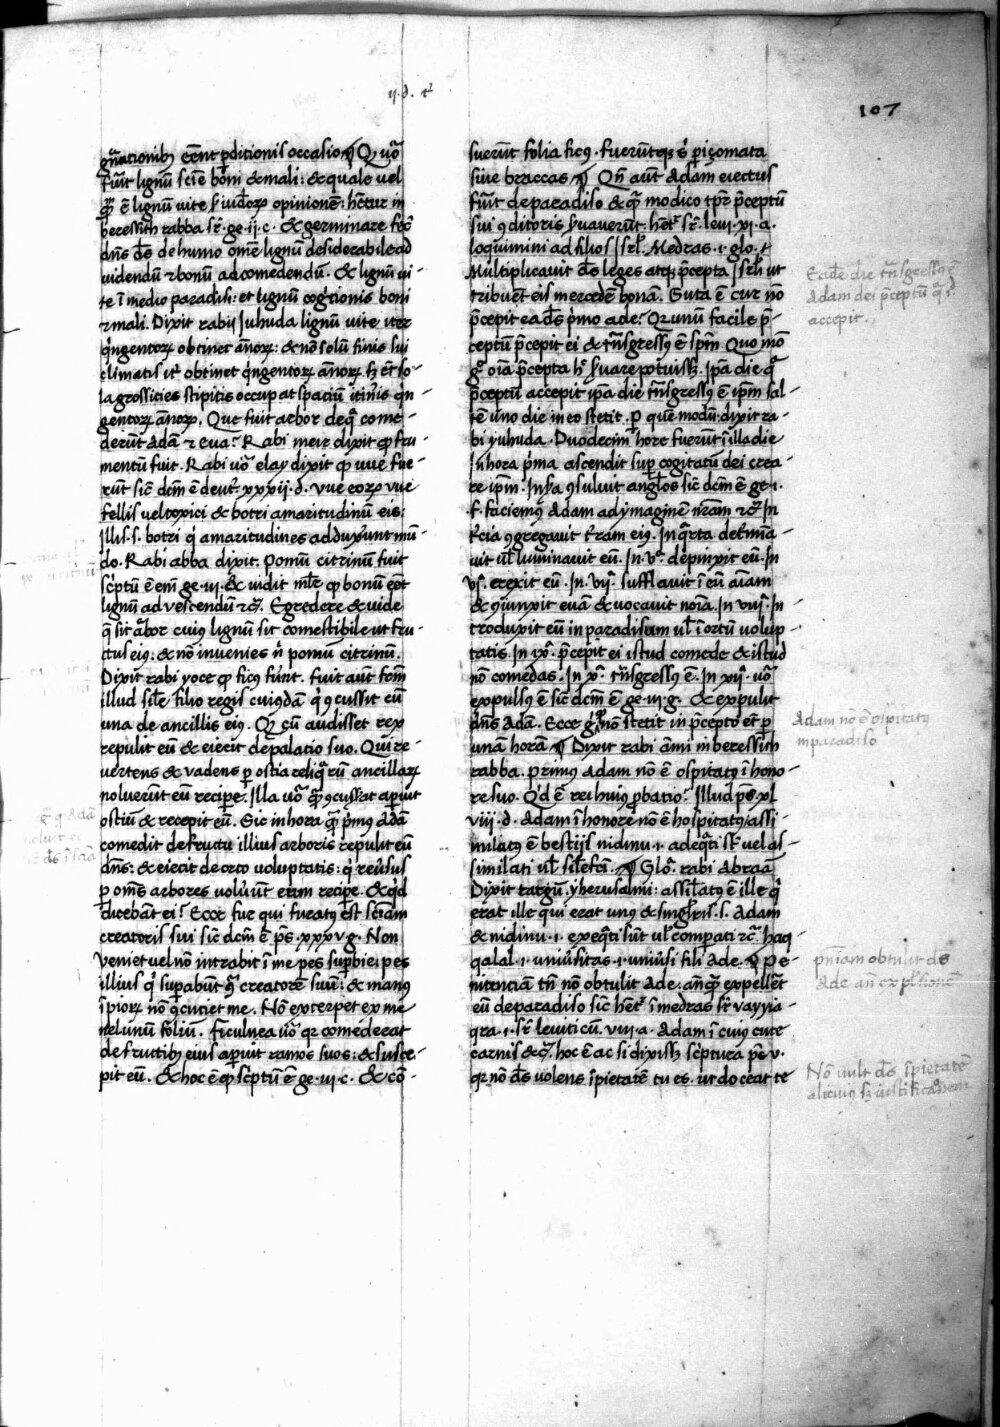 ij. d. t²
107
gñationibȝ eēnt pditionis occasio ¶ Q̃ uō
fuit lignū sciē boni & mali : & quale uel
qđ ē lignū uite ẜ iudeoꝝ opinionē : hētur in
beressith rabba. sr̄. ge. ii. c. & germinare fec̄
dn̄s dẽs de humo omē lignū desiderabile ad
uidendū ⁊ bonū ad comedendū. & lignū ui-
te ī medio paradisi : et lignū cogitionis boni
⁊ mali. Dixit rabij Juhuda lignū uite iter
q̇ngentoꝝ obtinet annoꝝ : & nō solū finis sui
climatis iť obtinet q̇ngentoꝝ annoꝝ. ẜʒ et so-
la grossicies stipitis occupat spatiū itinis q̇n-
gentoꝝ annoꝝ. Que fuit arbor de q̃ come-
derūnt Adā ⁊ Eua? Rabi meir dixit qꝫ fru-
mentū fuit. Rabi uō elay dixit qꝫ uue fue-
rūnt sic̄ dcm̄ ē deut̄. xxxij. d. vue eoꝝ vue
fellis uel toxici & botri amaritudinū eis :
Illi. s. botri q̇ amaritudines adduxerunt mū-
do. Rabi abba dixit. Pomū citrinū fuit
sc̓ptū ē em̄ ge. iij. & uidit ml̄r qꝫ bonū eēt
lignū ad vescendū ⁊c̃. Egredere & uide
q̃ sit arbor cuiꝰ lignū sit comestibile ut fru-
ctus eiꝰ : & nō inuenies n̓ pomū citrinū.
Dixit rabi yoce qꝫ ficꝰ fūnt. fuit aūt fcm̄
illud sil̄e filio regis cuiꝰdā q̇ ꝯcussit cū
una de ancillis eiꝰ. Q̃ cū audisset rex
repulit eū & eiecit de palatio suo. Qui re-
uertens & vadens p ostia reliq̃rū ancillaꝝ
noluerūt eū recipe. Illa uō q̃ ꝯcussat apuit
ostiū & recepit eū. Sic in hora q̃ p̓mꝰ Adā
comedit de fructu illius arboris repulit eū
dn̄s : & eiecit de orto voluptatis : q̇ reūsus
p om̄s arbores voluūt eum recipe. & q̓d
dicebāt ei? Ecce fur qui furatꝰ est sciam
creatoris sui sic̄ dcm̄ ē ps̄. xxxv g. Non
veniet uel nō intrabit ī me pes supbie : pes
illius q̇ supabūt ꝯ̃ creatorē suū : & manꝰ
īpioꝝ nō ꝯcutiet me. Nō exterpet ex me
nel unū foliū. Ficulnea uō qꝛ comederat
de fructibȝ eius apuit ramos suos : & susce-
pit eū. & hoc ē qꝫ sc̓ptū ē ge. iij. c. & cō-
suerūt folia ficꝰ. fuerūtqꝫ s̓ piçomata
siue braccas ¶ Qn̄ aūt Adam eiectus
fuit de paradiso & q̃ modico tp̄r p̄ceptū
sui ꝯditoris ẜuauerūt. hēt̄ sr̄. leui. xi. a.
loquimini ad filios isrl̄. Medras. i. glo. t
Multiplicauit dẽs leges atqꝫ p̄cepta isrl̄i ut
tribuēt eis mercedē bonā. Suta ē cur nō
p̄cepit ea dẽs p̓mo ade? Qꝛ unū facile p̄-
ceptū p̄cepit ei & tn̄sgressꝰ ē ip̄m. Quo mō
g̊ oīa p̄cepta hꝰ ẜuare potuissȝ. Ip̄a die q̃
p̄ceptū accepit ip̄a die tn̄sgressꝰ ē ip̄m sal-
tē uno die in eo stetit. p quē modū : dixit ra-
bi yuhuda. Duodecim hore fuerūt ī illa die
In hora p̓ma ascendit sup cogitatū dei crea-
re ip̄m. In ẜa ꝯsuluit angl̄os sic̄ dcm̄ ē ge. i.
f. faciemꝰ Adam ad ymaginē nr̄am ⁊c̃ In
t̓cia ꝯgregauit t̓ram eiꝰ. In q̃rta det̓mīa-
uit ul̄ luminauit eū. In. vᵃ. depinxit eū. In
vjᵃ. erexit eū. In. vijᵃ. sufflauit ī eū aīam
& ꝯiunxit euā & uocauit noīa. In viijᵃ. In-
troduxit eū in paradisum ul̄ ī ortū volup-
tatis. In ixᵃ. p̄cepit ei istud comede & istud
nō comedas. In xᵃ. tn̄sgressꝰ ē. In xijᵃ. uō
expulsꝰ ē sic̄ dcm̄ ē ge. iij. g. & expulit
dn̄s Adā. Ecce g̊ nō stetit in p̄cepto et̄ p
unā horā ¶ Dixit rabi ami in beressith
rabba. primus Adam nō ē ospitatꝰ ī hono-
re suo. Q̓d ē rei huiꝰ pbatio? Illud ps̄. xl
viij. d. Adam ī honore nō ē hospitatꝰ assi-
milatꝰ ē bestijs nidmu. i. adeq̃ti sūt uel as-
similati ul̄ silefcī. ¶ Glo̓. rabi Abraā
Dixit targū. yherusalmi : assilatꝰ ē ille q̇
erat ille qui erat unꝰ & singl̄ris. s. Adam
& nidmu. i. exeq̃ti sūt ul̄ compati ⁊c̃. haq-
qalal. i. uniūsitas. i. uniūsi filij Ade. ¶ Pe-
nitenciam tn̄ nō obtulit Ade. anq̃ expellēt
eū de paradiso sic̄ hēt̄ ī medras sr̄ vayyia-
qra. i. sr̄ leuiticū. viij. a. Adam ī cuiꝰ cute
carnis & q̃. hoc ē ac si dixissȝ sc̓ptura ps̄ v.
qꝛ nō dẽs volens īpietatē tu es. ut doceat te
Eadē die tn̄sgressꝰ ē
Adam dei p̄ceptū q̃ ī
accepit.
Adam nō ē ospitatꝰ
in paradiso
pn̄iam obtulit dẽs
Ade an̄ expl̄sionē
Nō uult dẽs īpietatē
alicuiꝰ ẜʒ iustificacionem